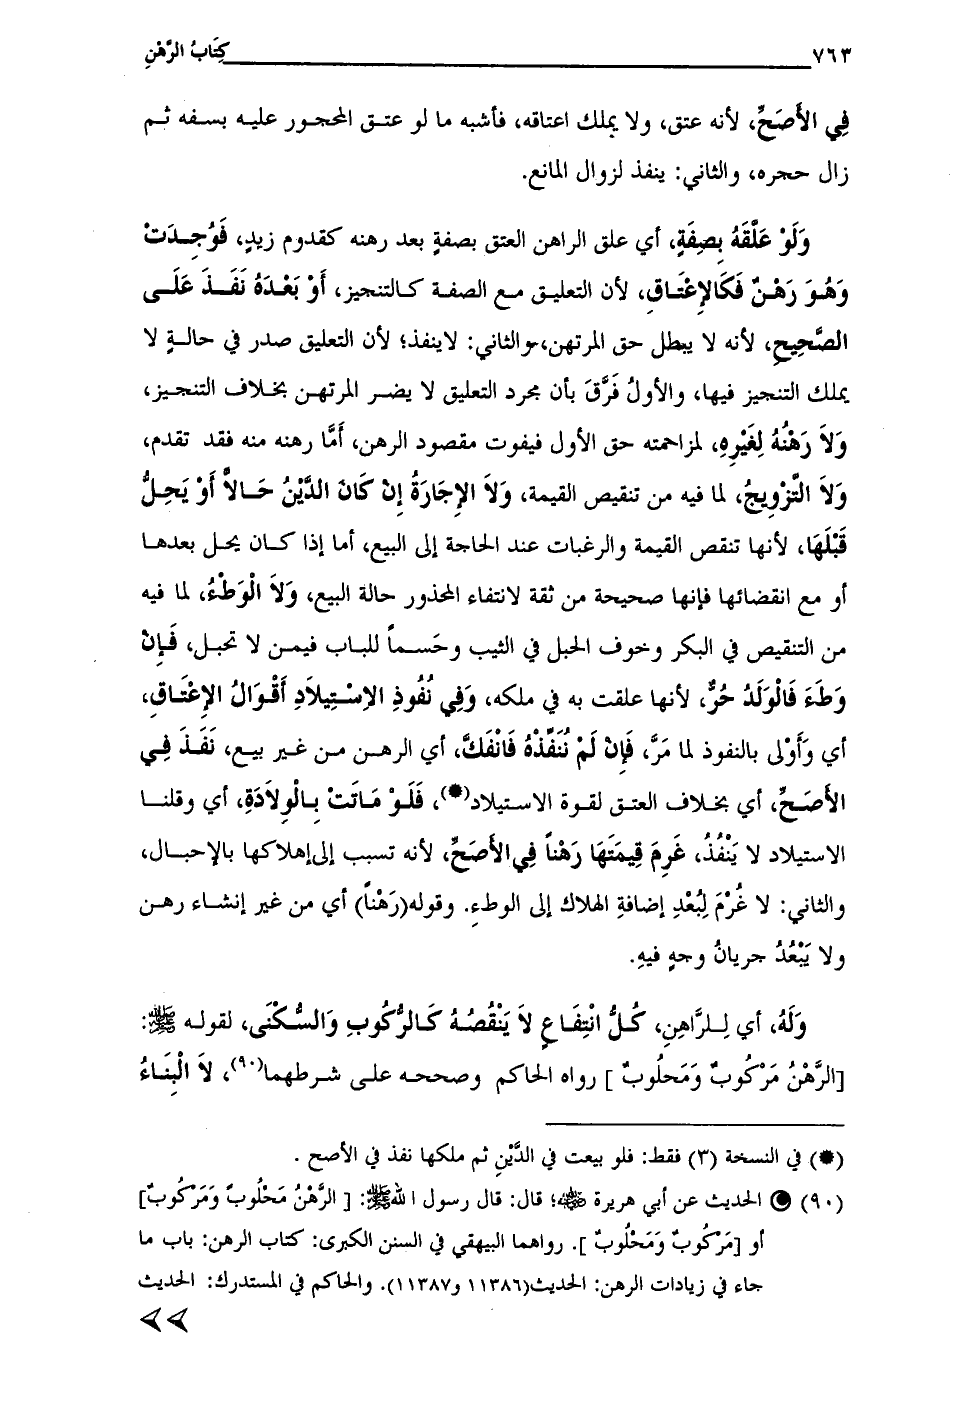 ٧٦٣ كِتَابُ الرَّهْنِ
فِي الأَصَحِّ، لأنه عتق، ولا يملك اعتاقه، فأشبه ما لو عتق المحجور عليه بسفه ثم
زال حجره، والثاني: ينفذ لزوال المانع.
وَلَوْ عَلَّقَهُ بِصِفَةٍ، أي علق الراهن العتق بصفةٍ بعد رهنه كقدوم زيدٍ، فَوُجِدَتْ
وَهُوَ رَهْنٌ فَكَالإِعْتَاقِ، لأن التعليق مع الصفة كالتنجيز، أَوْ بَعْدَهُ نَفَذَ عَلَى
الصَّحِيحِ، لأنه لا يبطل حق المرتهن، والثاني: لاينفذ؛ لأن التعليق صدر في حالةٍ لا
يملك التنجيز فيها، والأولُ فَرَّقَ بأن مجرد التعليق لا يضر المرتهن بخلاف التنجيز،
وَلاَ رَهْنُهُ لِغَيْرِهِ، لمزاحمته حق الأول فيفوت مقصود الرهن، أَمَّا رهنه منه فقد تقدم،
وَلاَ التَّزْوِيجُ، لما فيه من تنقيص القيمة، وَلاَ الإِجَارَةُ إِنْ كَانَ الدَّيْنُ حَالاًّ أَوْ يَحِلُّ
قَبْلَهَا، لأنها تنقص القيمة والرغبات عند الحاجة إلى البيع، أما إذا كان يحل بعدها
أو مع انقضائها فإنها صحيحة من ثقة لانتفاء المحذور حالة البيع، وَلاَ الْوَطْءُ، لما فيه
من التنقيص في البكر وخوف الحبل في الثيب وحَسماً للباب فيمن لا تحبل، فَإِنْ
وَطَءَ فَالْوَلَدُ حُرٌّ، لأنها علقت به في ملكه، وَفِي نُفُوذِ الاِسْتِيلاَدِ أَقْوَالُ الإِعْتَاقِ،
أي وَأَوْلى بالنفوذ لما مَرَّ، فَإِنْ لَمْ نُنَفِّذْهُ فَانْفَكَّ، أي الرهن من غير بيع، نَفَذَ فِي
الأَصَحِّ، أي بخلاف العتق لقوة الاستيلاد(*)، فَلَوْ مَاتَتْ بِالْوِلاَدَةِ، أي وقلنا
الاستيلاد لا يَنْفُذُ، غَرِمَ قِيمَتَهَا رَهْناً فِي الأَصَحِّ، لأنه تسبب إلى إهلاكها بالإحبال،
والثاني: لا غُرْمَ لِبُعْدِ إضافةِ الهلاك إلى الوطءِ. وقوله(رَهْناً) أي من غير إنشاء رهن
ولا يَبْعُدُ جريانُ وجهٍ فيهِ.
وَلَهُ، أي لِلرَّاهِنِ، كُلُّ انْتِفَاعٍ لاَ يَنْقُصُهُ كَالرُّكُوبِ وَالسُّكْنَى، لقوله ﷺ:
[الرَّهْنُ مَرْكُوبٌ وَمَحلُوبٌ ] رواه الحاكم وصححه على شرطهما(٩٠)، لاَ الْبِنَاءُ
(*) في النسخة (٣) فقط: فلو بيعت في الدَّيْنِ ثم ملكها نفذ في الأصح .
(٩٠) الحديث عن أبي هريرة ﷺ؛ قال: قال رسول الله ﷺ: [ الرَّهْنُ مَحْلُوبٌ وَمَرْكُوبٌ]
أو [مَرْكُوبٌ وَمَحْلُوبٌ ]. رواهما البيهقي في السنن الكبرى: كتاب الرهن: باب ما
جاء في زيادات الرهن: الحديث(١١٣٨٦ و١١٣٨٧). والحاكم في المستدرك: الحديث